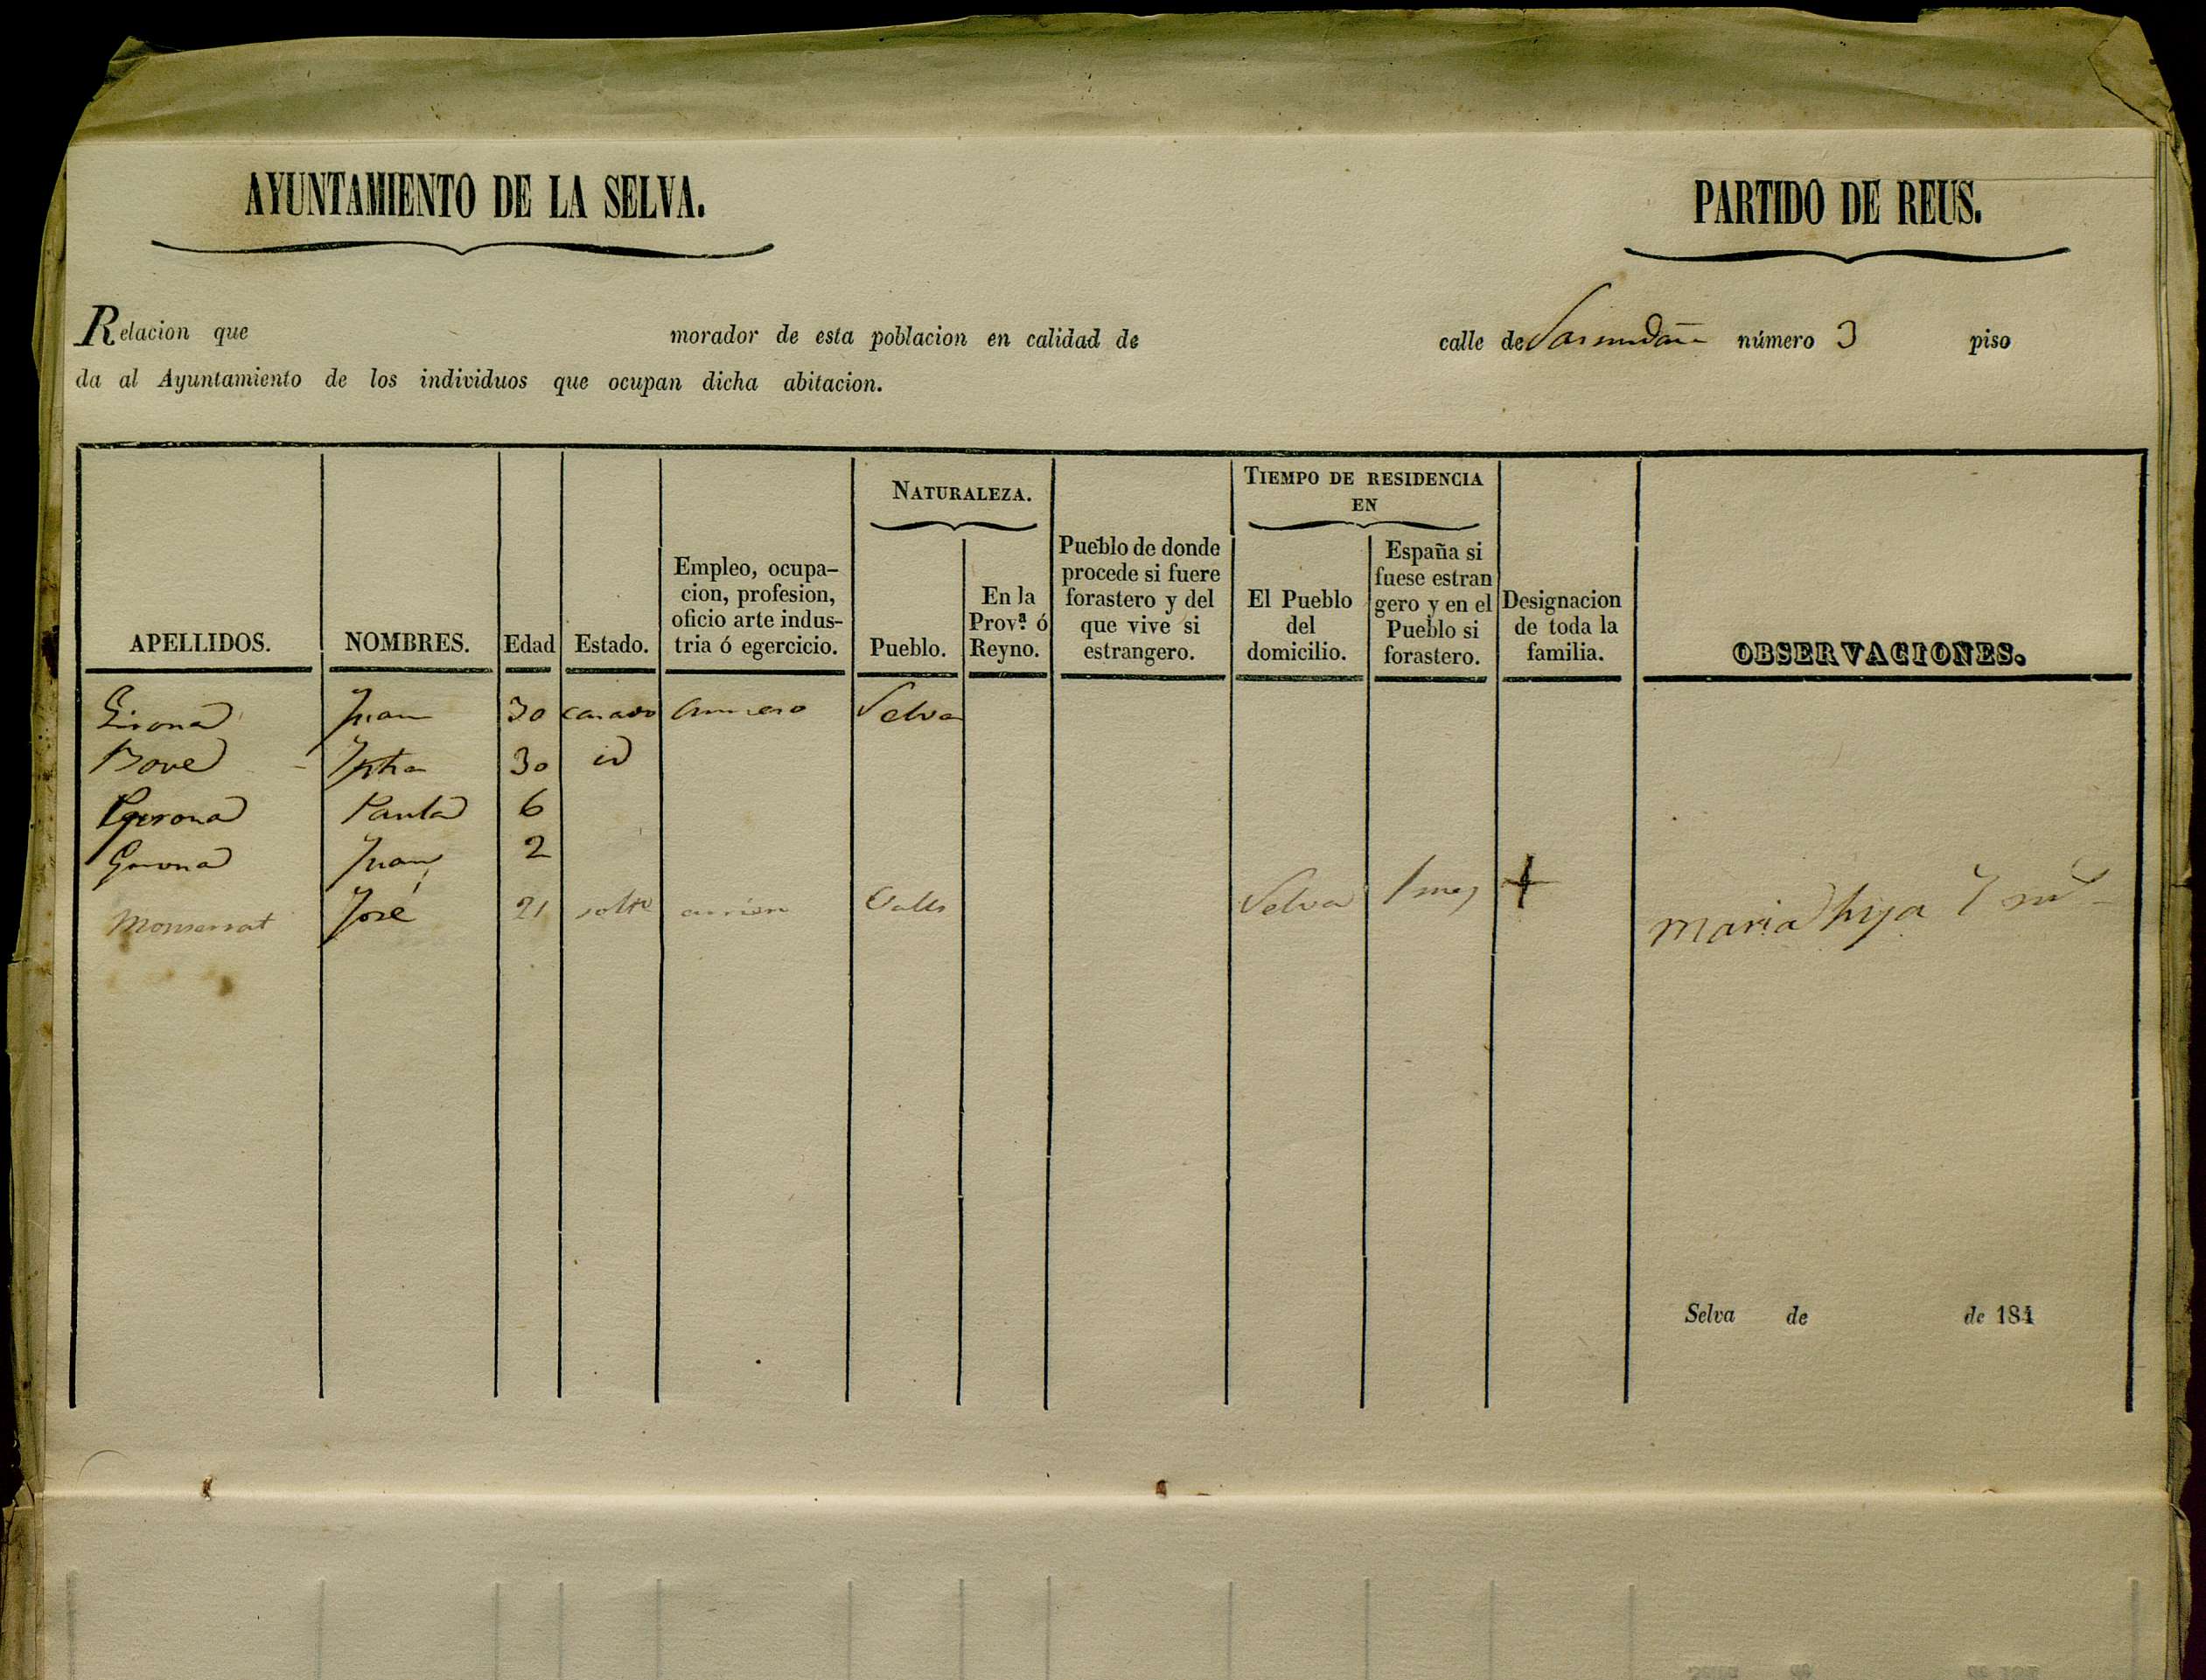 AYUNTAMIENTO DE LA SELVA.
PARTIDO DE REUS.
Relacion que morador de esta poblacion en calidad de calle de número 3 piso
da al Ayuntamiento de los individuos que ocupan dicha abitacion.
APELLIDOS.
NOMBRES.
Edad
Estado.
Empleo, ocupa-
cion, profesion,
oficio arte indus-
tria ó egercicio.
NATURALEZA.
Pueblo.
En la
Prov.ª ó
Reyno.
Pueblo de donde
procede si fuere
forastero y del
que vive si
estrangero.
TIEMPO DE RESIDENCIA
EN
El Pueblo
del
domicilio.
España si
fuese estran
gero y en el
Pueblo si
forastero.
Designacion
de toda la
familia.
OBSERVACIONES.
Girona Juan 30 casado Selva
Bove 30 id
Gerona Paula 6
Gerona Juan 2
Monserrat José 21 Valls Selva 1 mes +
Maria hija 7
Selva de de 184